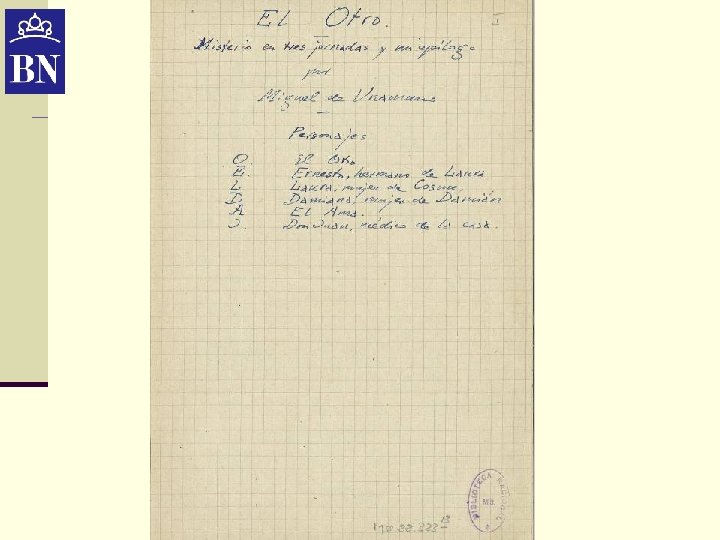 BN
El Otro. I
Misterio en tres jornadas y un epílogo
por
Miguel de Unamuno
Personajes
O. El Otro
E. Ernesto, hermano de Laura
L Laura, mujer de Cosme,
D Damiana, mujer de Damián
A El Ama.
J. Don Juan, médico de la casa.
BIBLIOTECA NACIONAL